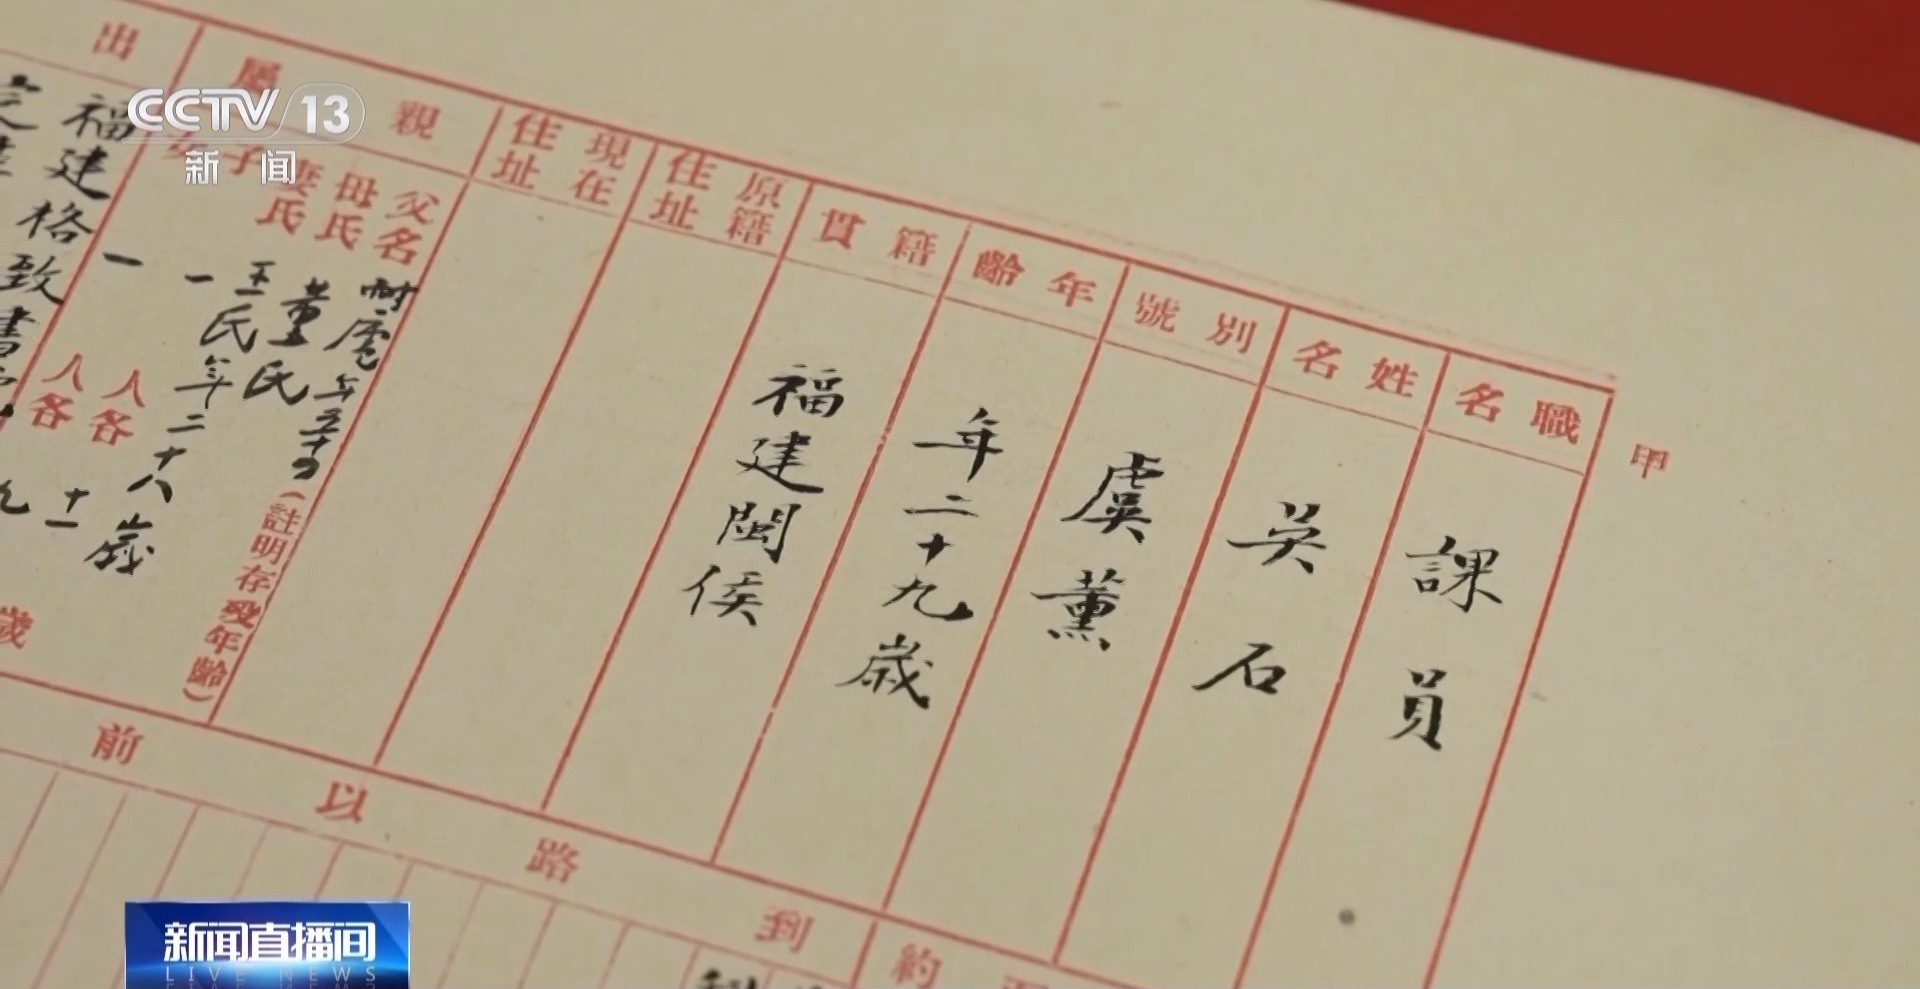 CCTV 13
新闻
甲
職名
課員
姓名
吳石
別號
虞薰
年齡
年二十九歲
籍貫
福建閩侯
原籍住址
現在住址
親屬
父名
年五十四
(註明存歿年齡)
母氏
董氏
妻氏
王氏年二十八歲
子
一
人各
十一
女
一
人各
九
歲
出
福建格致書
到
路
以
前
約
新闻直播间
LIVE NEWS